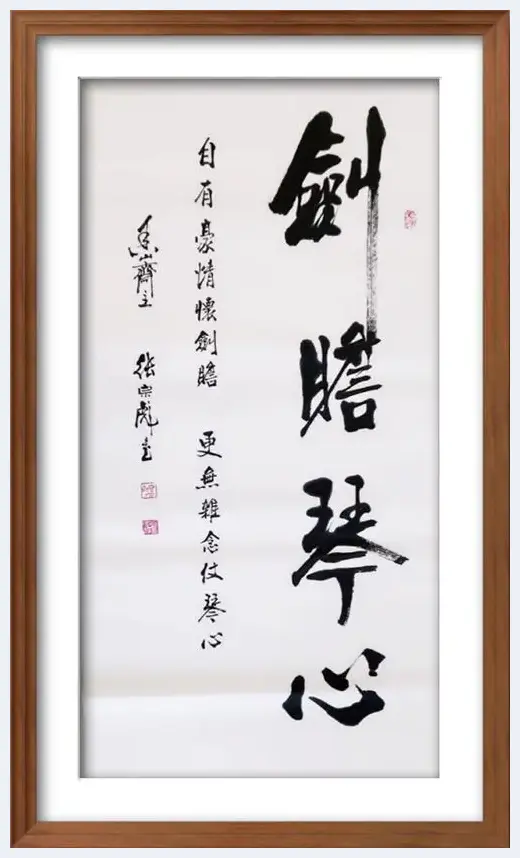 劍膽琴心
自有豪情懷劍膽 更無雜念仗琴心
山齋主 张宗彪书